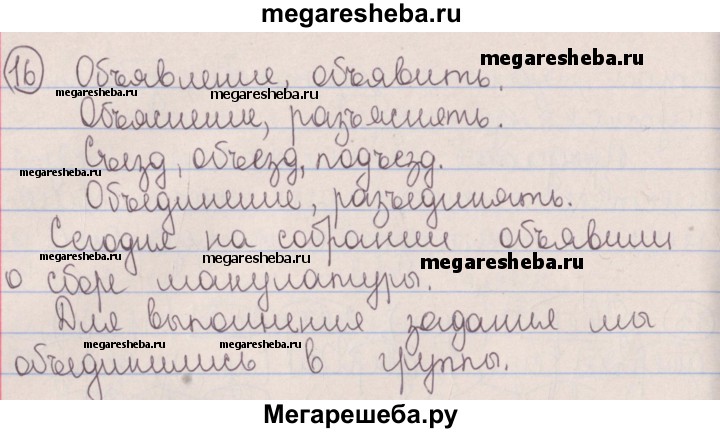 megaresheba.ru
16 Объявление, объявить.
megaresheba.ru
megaresheba.ru
megaresheba.ru
Объяснение, разъяснять.
megaresheba.ru
Съезд, объезд, подъезд.
megaresheba.ru
Объединение, разъединять.
megaresheba.ru
megaresheba.ru
Сегодня на собрании объявили
megaresheba.ru
megaresheba.ru
о сборе макулатуры.
Для выполнения задания мы
megaresheba.ru
megaresheba.ru
объединились в группы.
Мегарешеба.ру